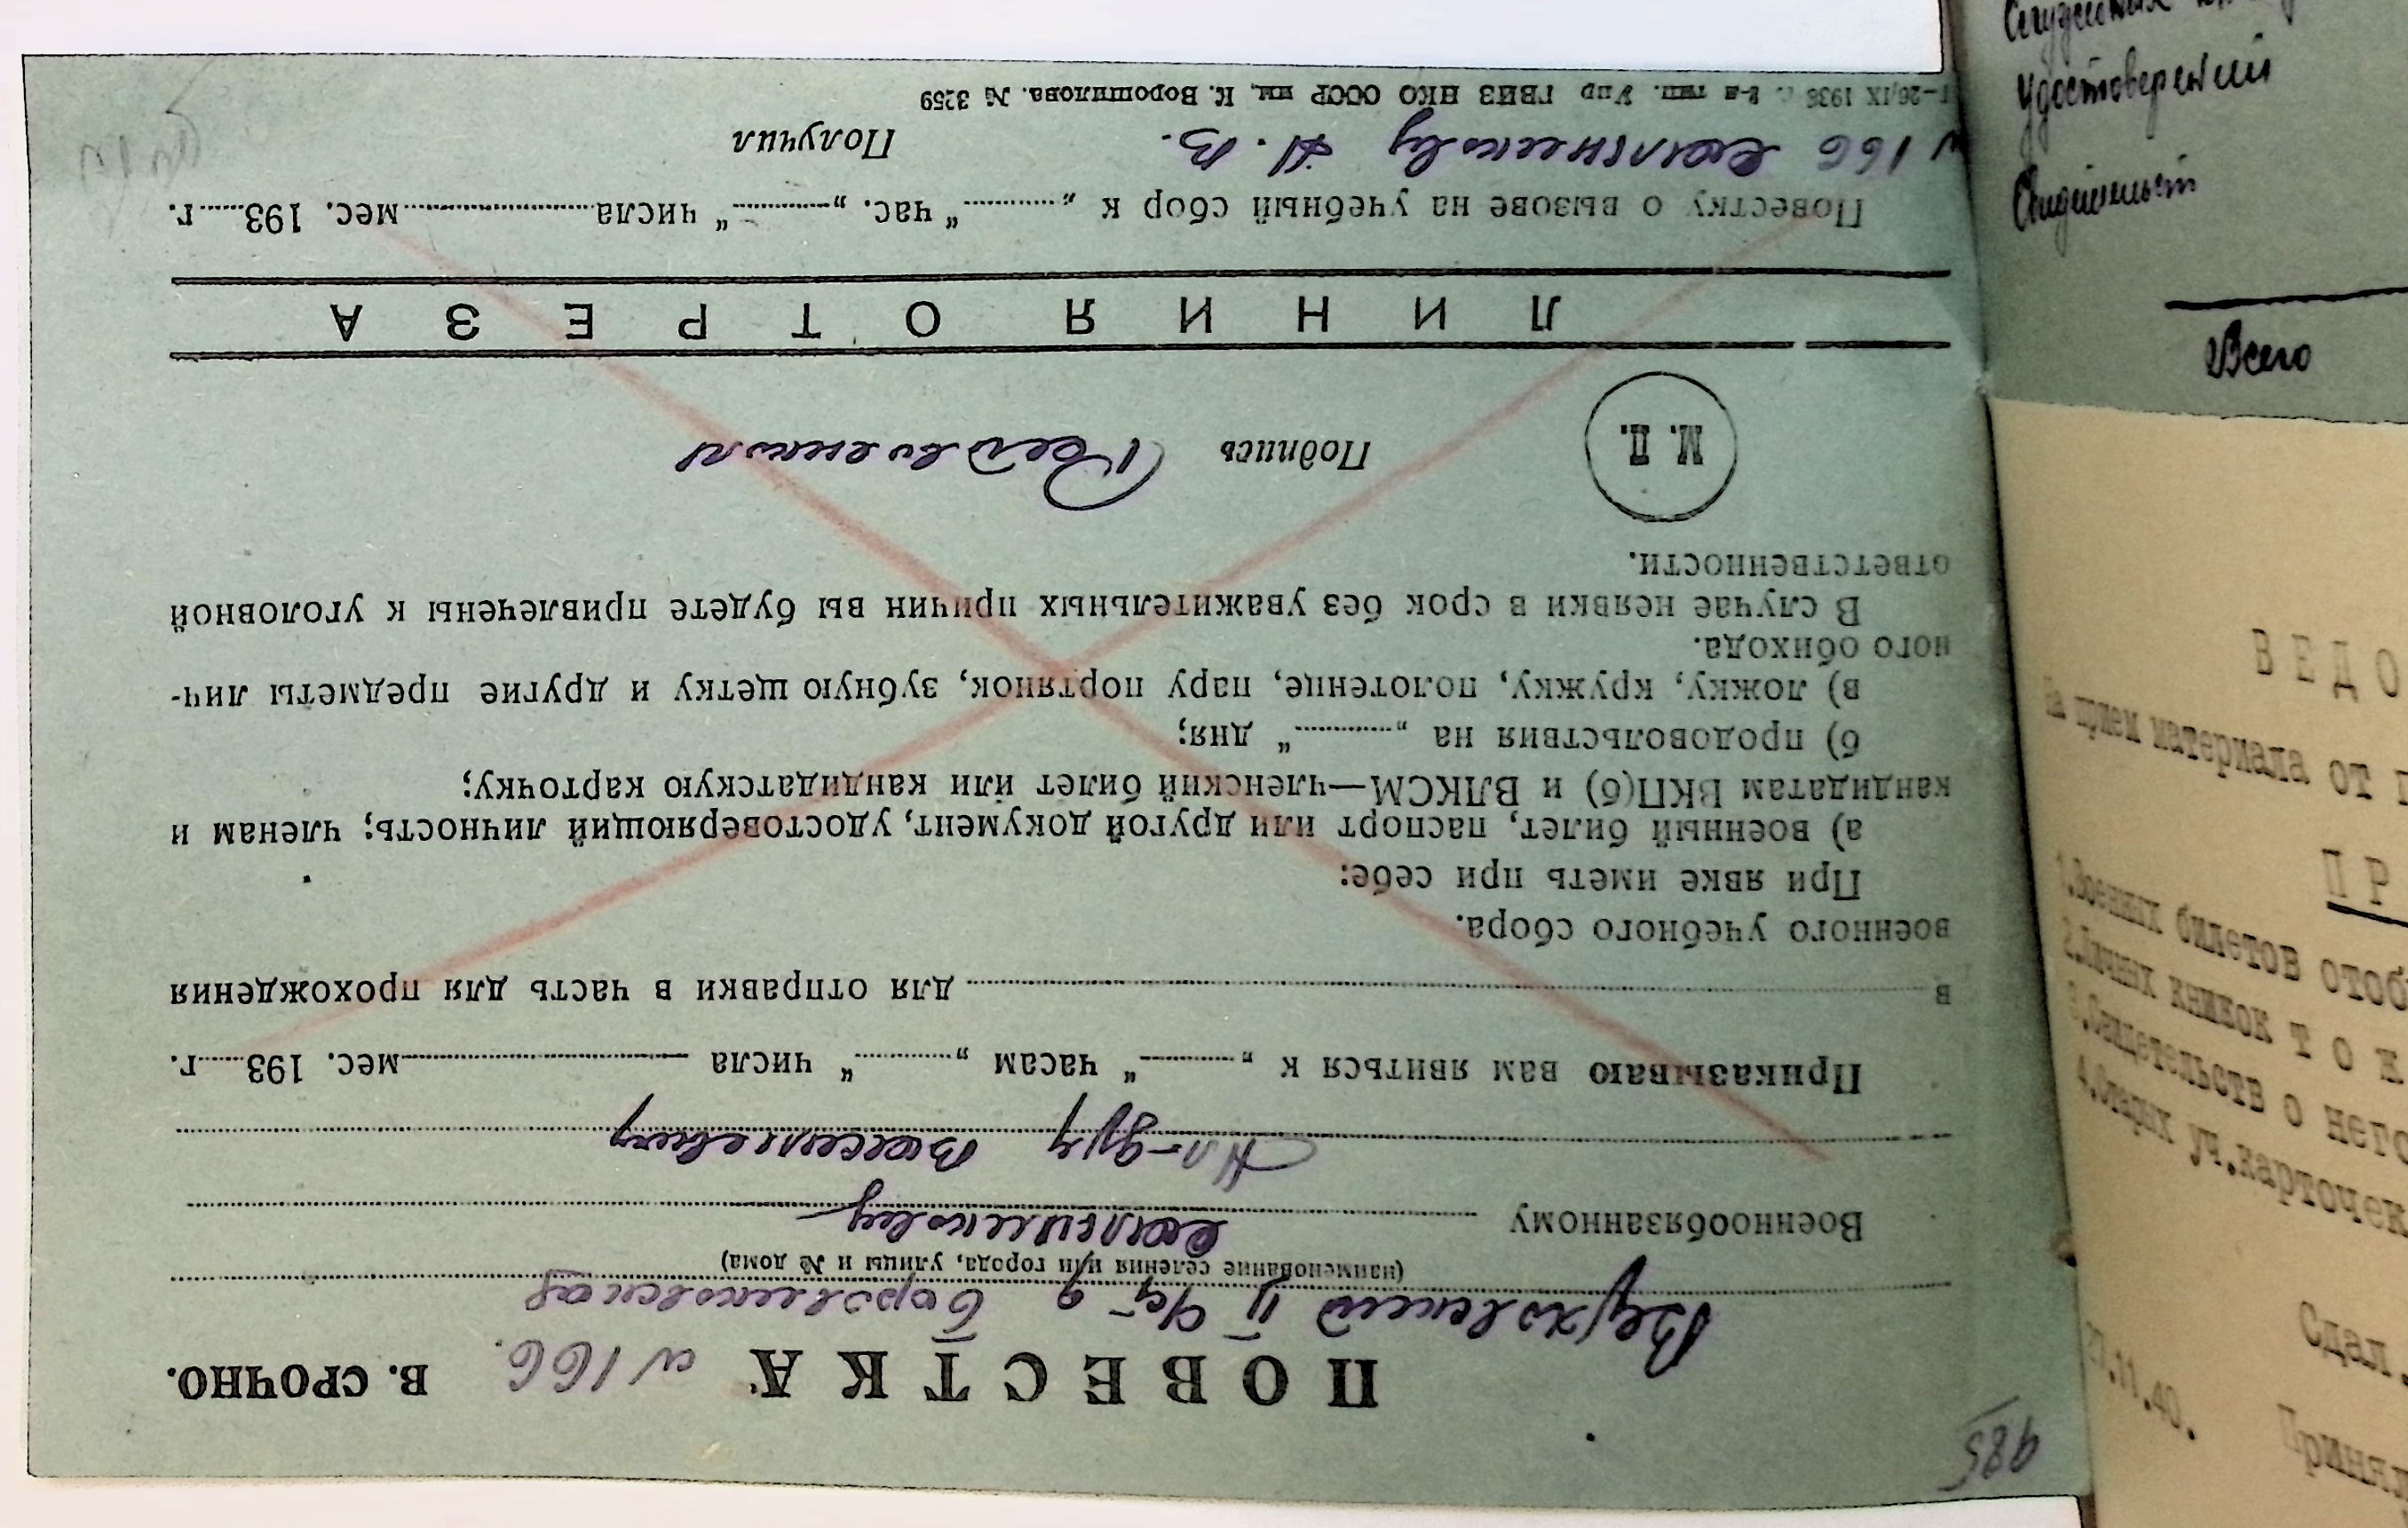 985
ПОВЕСТКА № 166. В. СРОЧНО.
(наименование селения или города, улицы и № дома)
Военнообязанному
Ал-дру Васильевичу
Приказываю вам явиться к „ “ часам „ “ числа мес. 193 г.
в для отправки в часть для прохождения
военного учебного сбора.
При явке иметь при себе:
а) военный билет, паспорт или другой документ, удостоверяющий личность; членам и
кандидатам ВКП(б) и ВЛКСМ—членский билет или кандидатскую карточку;
б) продовольствия на „ “ дня;
в) ложку, кружку, полотенце, пару портянок, зубную щетку и другие предметы лич-
ного обихода.
В случае неявки в срок без уважительных причин вы будете привлечены к уголовной
ответственности.
М. П.
Подпись
ЛИНИЯ ОТРЕЗА
Повестку о вызове на учебный сбор к „ “ час. „ “ числа мес. 193 г.
№ 166 А. В. Получил
26/IX 1936 г. 2-я тип. Упр ГВИЗ НКО СССР им. К. Ворошилова. № 3259
удостоверений
Всего
ВЕДО
на прием материала от
ПР
1.Военных билетов отоб
2.Личных книжок т о ж
3.Свидетельств о него
4.Старых уч.карточек
Сдал.
.11.40.
Принял